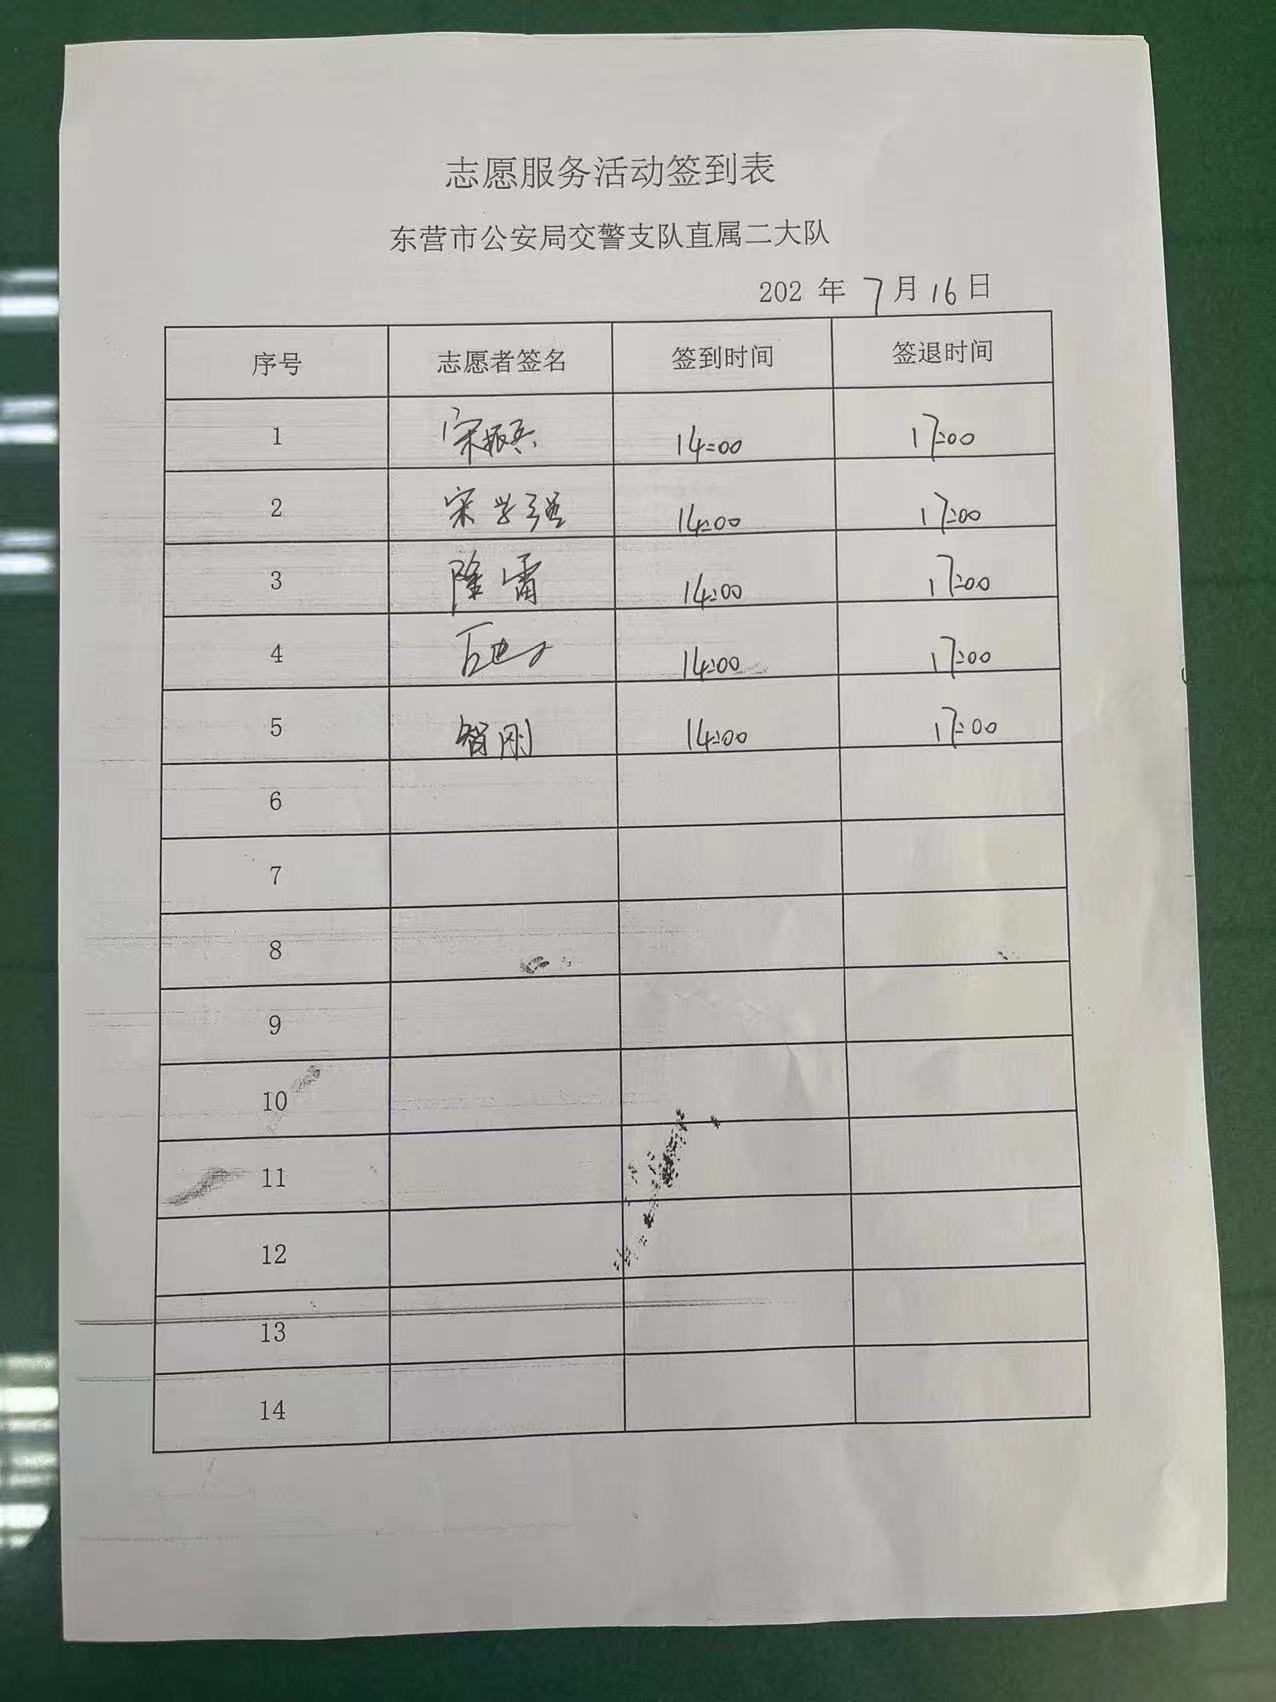 志愿服务活动签到表
东营市公安局交警支队直属二大队
202 年 7月16日
序号 志愿者签名 签到时间 签退时间
1 宋振兵 14:00 17:00
2 宋学强 14:00 17:00
3 隆雷 14:00 17:00
4 14:00 17:00
5 智刚 14:00 17:00
6
7
8
9
10
11
12
13
14